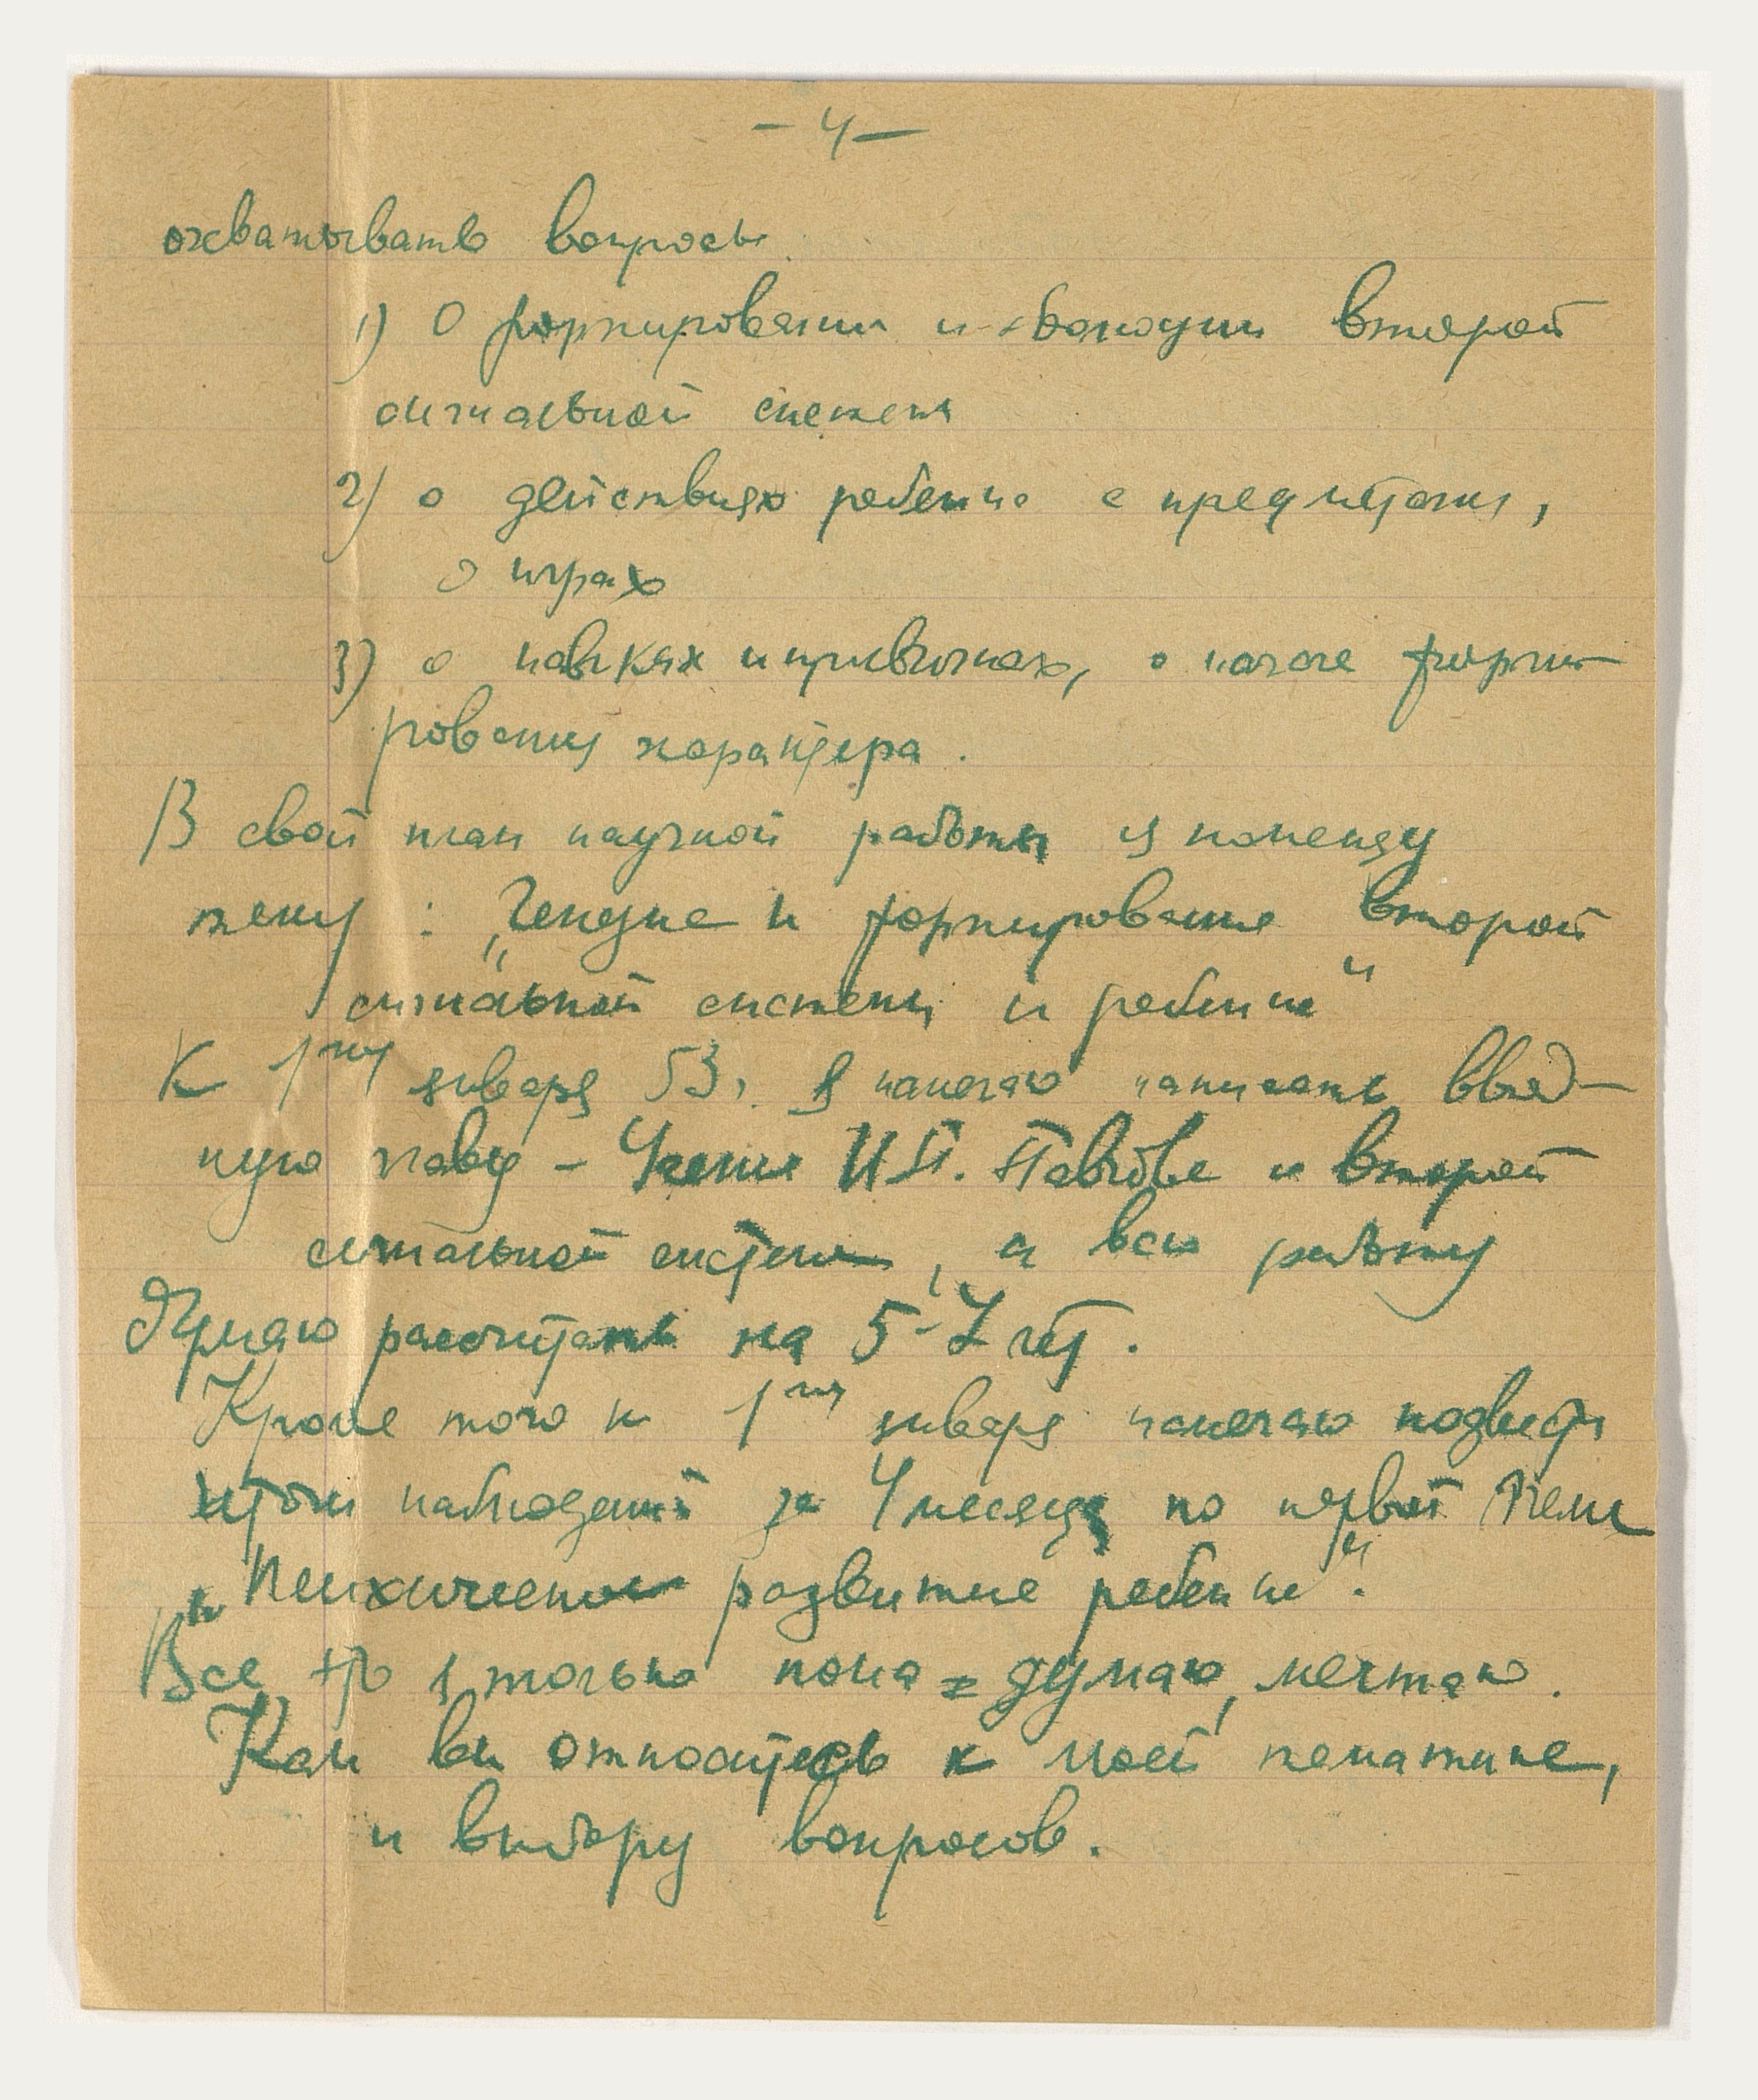 - 4 -
охватывать вопросы
1) О формировании и эволюции второй
сигнальной системы
2) о действиях ребенка с предметами,
о играх
3) о навыках и привычках, о начале форми-
рования характера.
В свой план научной работы я помещу
тему: „Генезис и формирование второй
сигнальной системы у ребенка"
К 1му января 53г. я намечаю написать ввод-
ную главу - Учение И.П. Павлова о второй
сигнальной системе, а всю работу
думаю рассчитать на 5-7 лет.
Кроме того к 1му января намечаю подвести
итоги наблюдений за 4 месяца по первой теме
„Психическое развитие ребенка".
Все это я только пока = думаю, мечтаю.
Как вы относитесь к моей тематике,
и выбору вопросов.